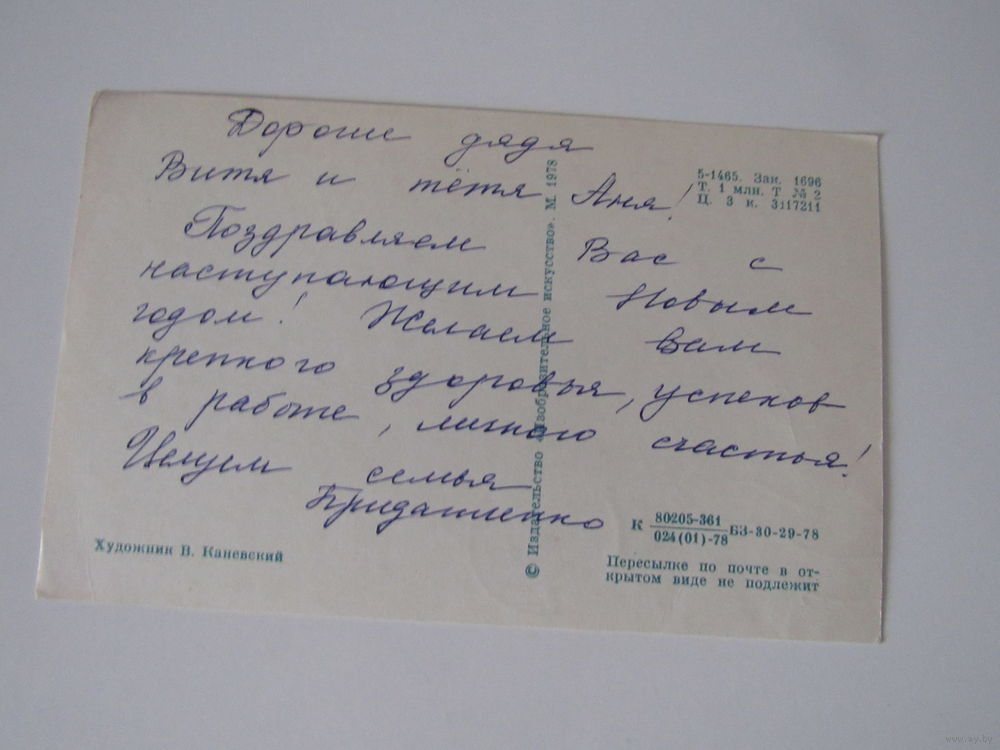 Дорогие дядя
Витя и тётя Аня!
Поздравляем Вас с
наступающим Новым
годом! Желаем вам
крепкого здоровья, успехов
в работе, личного счастья!
Целуем семья
5-1465. Зак. 1696
Т. 1 млн. Т № 2
Ц. 3 к. 3117211
© Издательство «Изобразительное искусство». М. 1978
К 80205-361
024(01)-78 БЗ-30-29-78
Художник В. Каневский
Пересылке по почте в от-
крытом виде не подлежит
www.ay.by